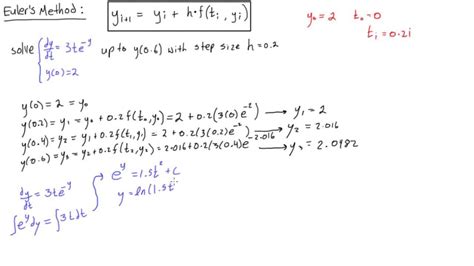 Euler's Method: y_{i+1} = y_i + h·f(t_i, y_i) y₀=2 t₀=0
t_i=0.2i
solve { dy/dt = 3te^{-y} up to y(0.6) with step size h=0.2
y(0)=2
y(0) = 2 = y₀
y(0.2) = y₁ = y₀ + 0.2f(t₀,y₀) = 2 + 0.2(3(0)e^{-2}) → y₁ = 2
y(0.4) = y₂ = y₁ + 0.2f(t₁,y₁) = 2 + 0.2(3(0.2)e^{-2}) → y₂ = 2.016
y(0.6) = y₃ = y₂ + 0.2f(t₂,y₂) = 2.016 + 0.2(3(0.4)e^{-2.016}) → y₃ = 2.0982
dy/dt = 3te^{-y}
∫e^y dy = ∫3t dt
e^y = 1.5t² + C
y = ln(1.5t